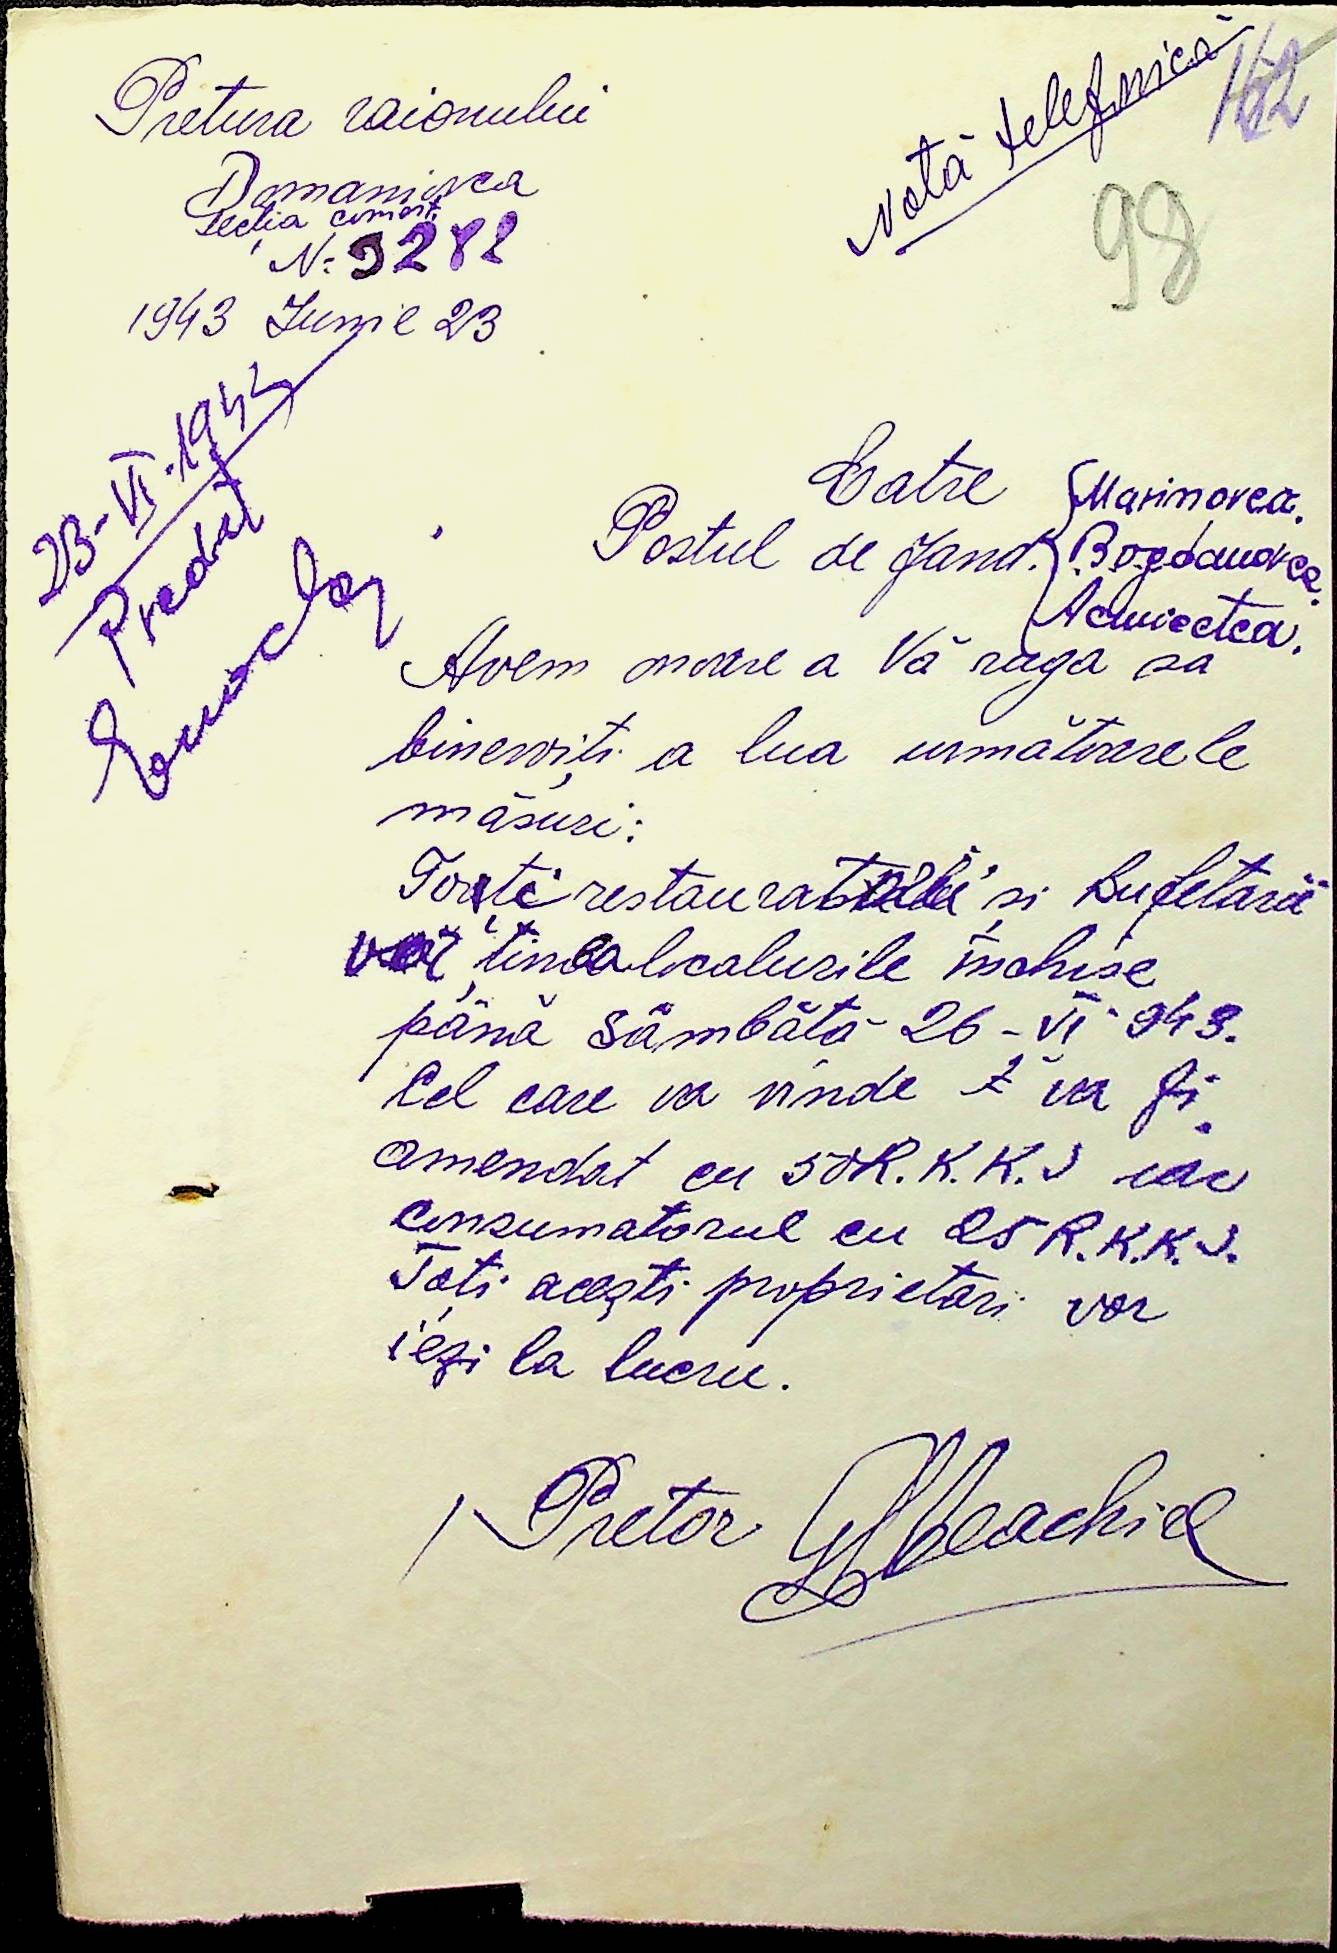 Pretura raionului
Domaniovca
Secția comerț.
N: 9282
1943 Iunie 23
Notă telefonică
98
23-VI-1943
Predat
Catre
Postul de Jand. { Marinovca.
Bogdanovca.
Avem onoare a Vă ruga sa
binevoiți a lua următoarele
măsuri:
Toate și bufetarii
vor ținea localurile închise
până Sâmbătă 26-VI-943.
Cel care va vinde va fi
amendat cu 50 R.K.K.S iar
consumatorul cu 25 R.K.K.S.
Toti acești proprietari vor
ieși la lucru.
Pretor